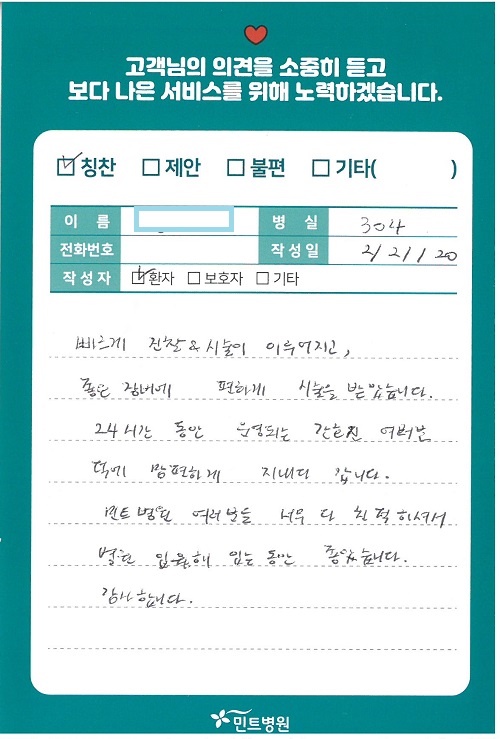 고객님의 의견을 소중히 듣고
보다 나은 서비스를 위해 노력하겠습니다.
☑ 칭찬 □ 제안 □ 불편 □ 기타( )
이 름 병 실 304
전화번호 작성일 21/1/20
작성자 ☑ 환자 □ 보호자 □ 기타
빠르게 진찰&시술이 이루어지고,
좋은 장비에 편하게 시술을 받았습니다.
24시간 동안 운영되는 간호진 여러분
덕에 맘편하게 지내다 갑니다.
민트병원 여러분들 너무 다 친절하셔서
병원 입원해 있는 동안 좋았습니다.
감사합니다.
민트병원